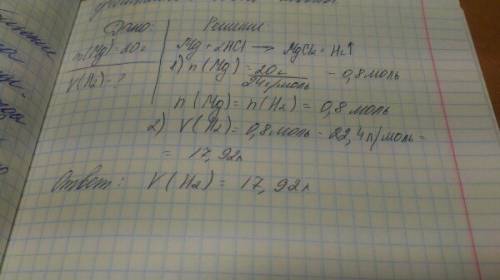 Дано: Решение
m(Mg)=20г Mg+2HCl → MgCl2 + H2↑
V(H2)=? 1) n(Mg) = 20г / 24г/моль = 0,8 моль
n(Mg) = n(H2) = 0,8 моль
2) V(H2) = 0,8 моль · 22,4 л/моль =
= 17,92 л
Ответ: V(H2) = 17,92 л